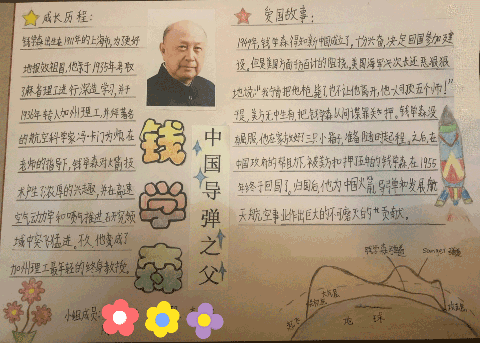 成长历程：
钱学森出生在1911年的上海市，为更好
地报效祖国，他于1935年考取
麻省理工进行深造学习，并于
1936年转入加州理工，并拜著名
的航空科学家冯·卡门为师，在
老师的指导下，钱学森对火箭技
术产生了浓厚的兴趣，并在高速
空气动力学和喷气推进研究领
域中突飞猛进，不久他竟成了
加州理工最年轻的终身教授。
小组成员：
钱学森
中国导弹之父
爱国故事：
1949年，钱学森得知新中国成立了，十分兴奋，决定回国参加建
设，但是美国方面却百计的阻挠，美国海军次长还恶狠狠
地说："我宁肯把他枪毙了，也不让他离开，他一人可顶五个师！"
美方无中生有，把钱学森以间谍罪关起押，钱学森没
屈服，
中国政府的帮助下，被美方扣押五年的钱学森，在1955
年终于回国了。归国后，他为中国火箭、导弹和发展航
天航空事业作出巨大的不可磨灭的贡献。
钱学森弹道
大气层
地球